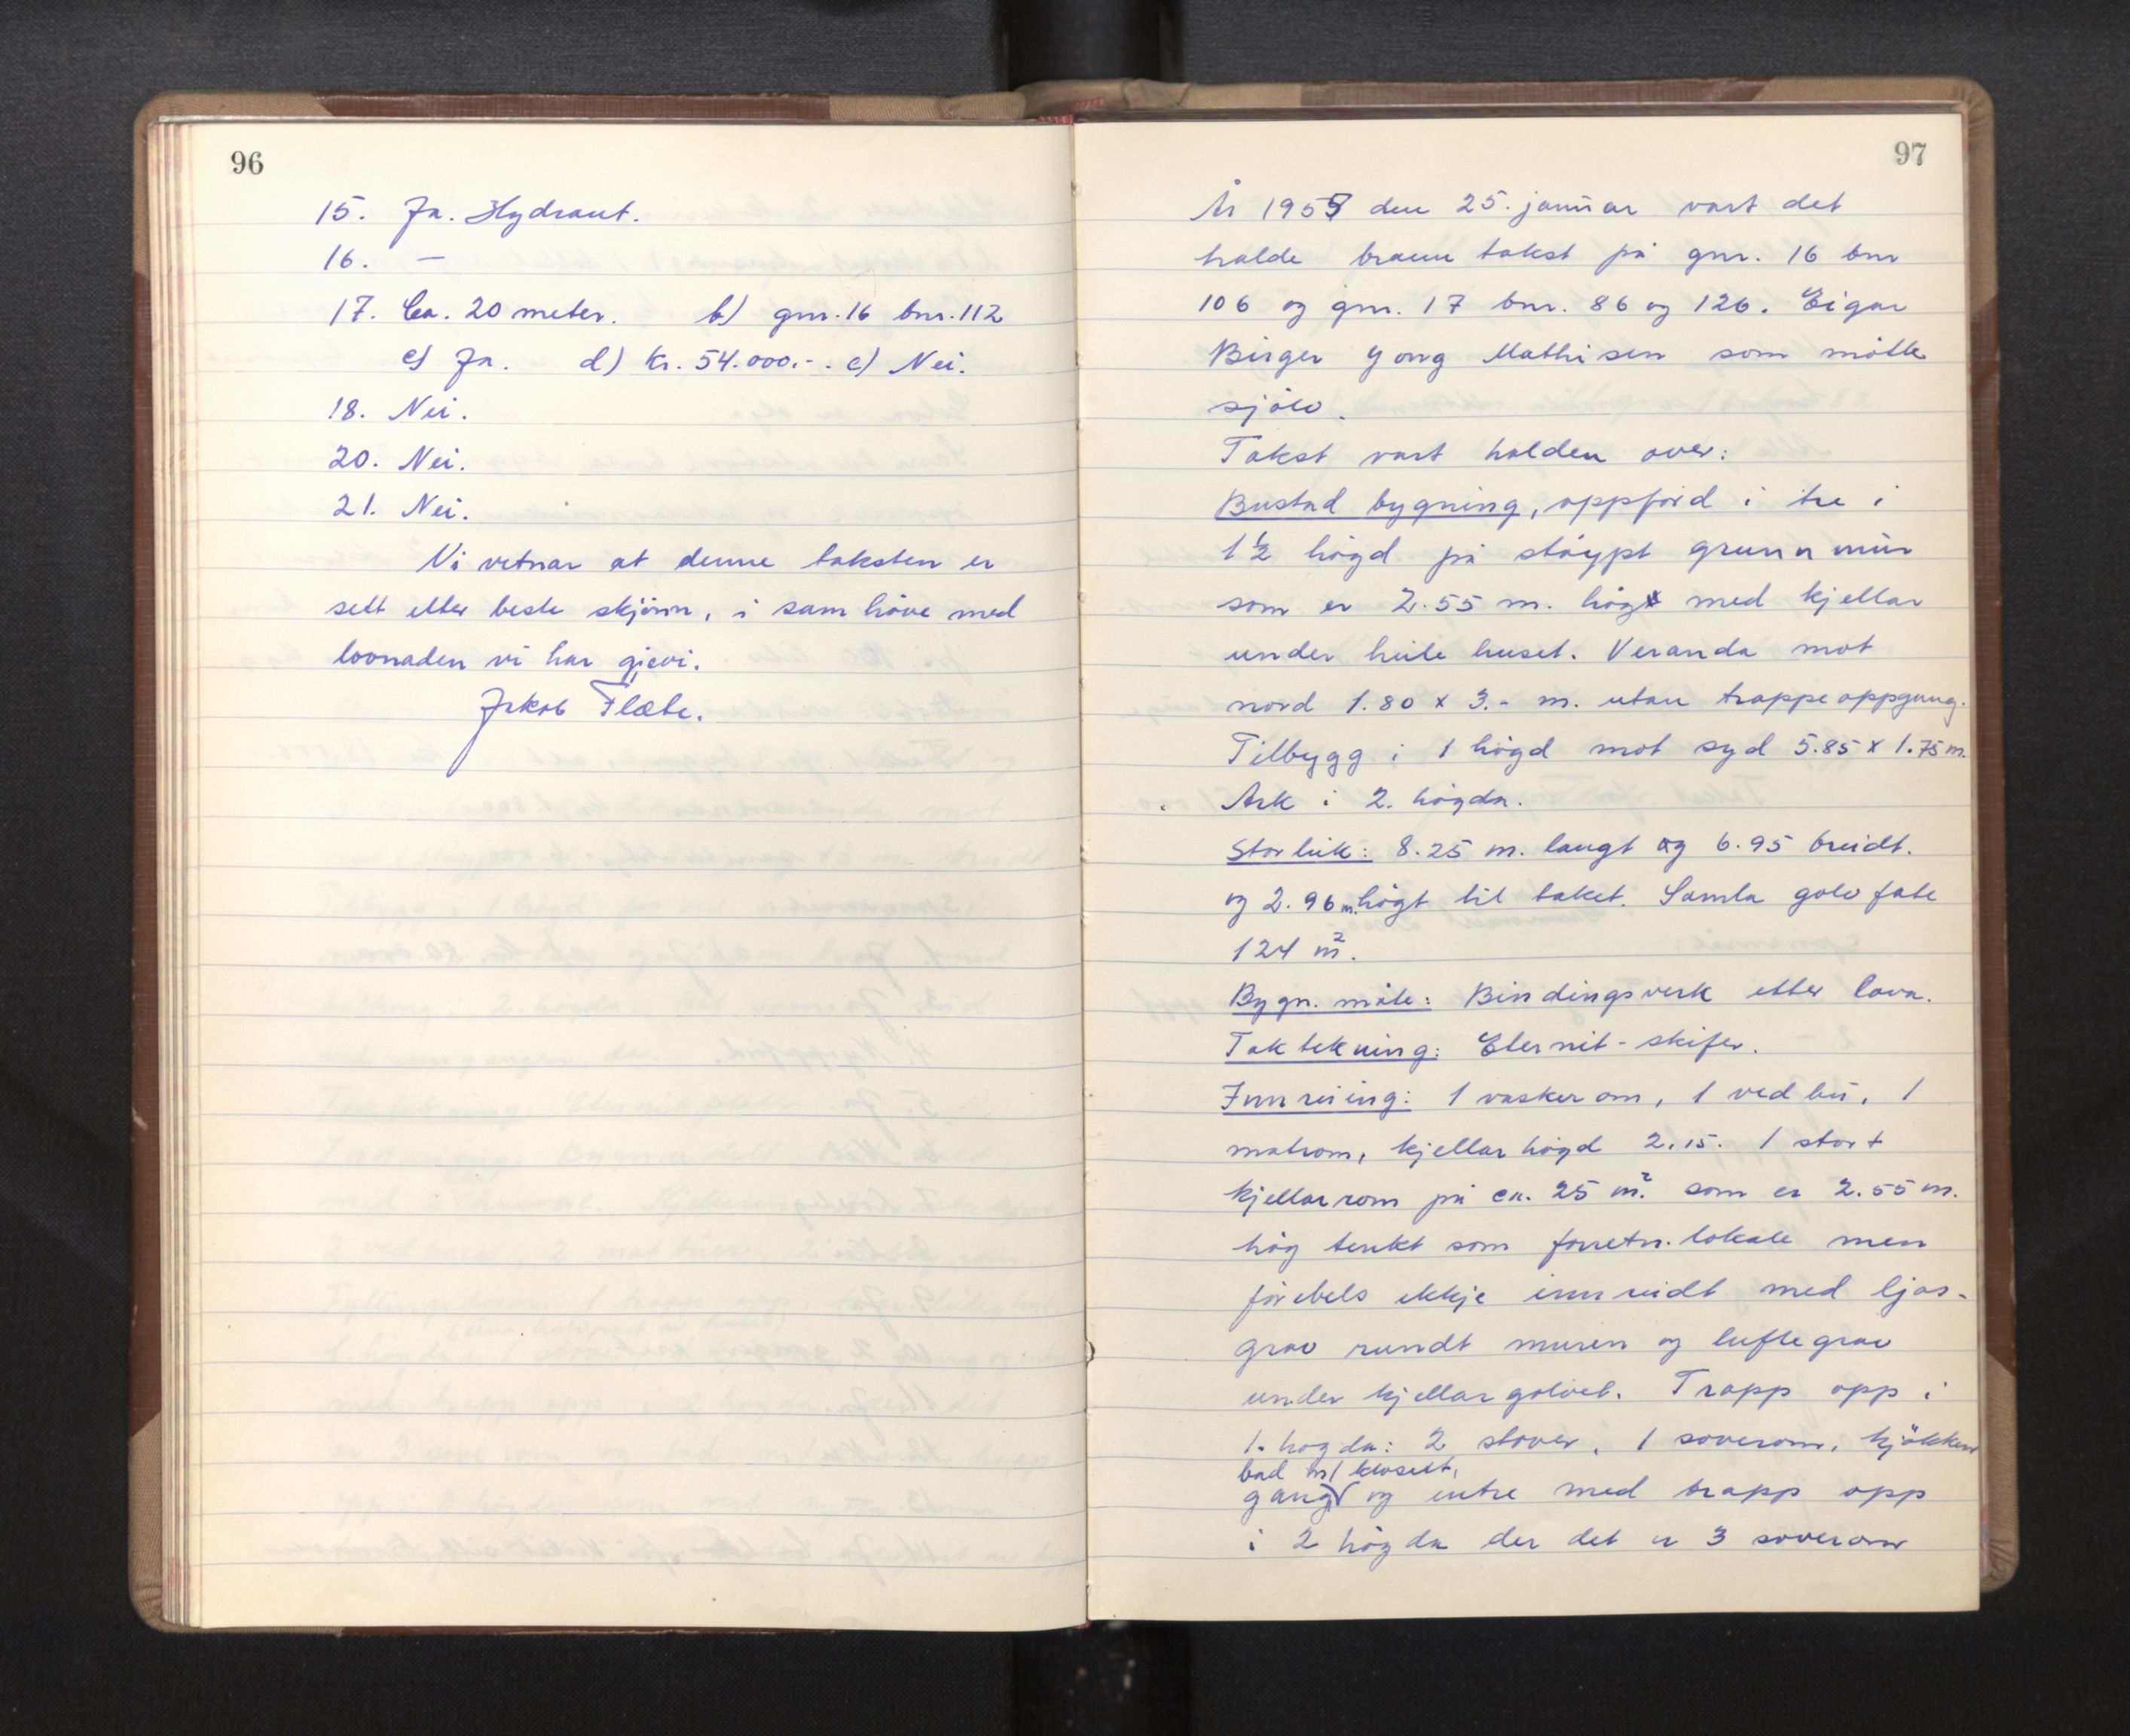 96
15. Ja. Hydrant.
16. —
17. Ca. 20 meter. b) gnr. 16 bnr. 112
c) Ja. d) kr. 54.000.-. e) Nei.
18. Nei.
20. Nei.
21. Nei.
Vi vitnar at denne taksten er
sett etter beste skjönn, i samhöve med
lovnaden vi har gjevi.
Jakob Flæte.
97
År 1955 den 25. januar vart det
halde brann takst på gnr. 16 bnr
106 og gnr. 17 bnr. 86 og 126. Eigar
Birger Yong Mathisen som mötte
sjölv.
Takst vart halden over:
Bustad bygning, oppförd i tre i
1½ högd på stöypt grunnmur
som er 2.55 m. hög med kjellar
under heile huset. Veranda mot
nord 1.80 x 3.- m. utan trappeoppgang.
Tilbygg i 1 högd mot syd 5.85 x 1.75 m.
Ark i 2. högda.
Storleik: 8.25 m. langt og 6.95 breidt.
og 2.96 m. högt til taket. Samla golvfate
124 m².
Bygn. måte: Bindingsverk etter lova.
Taktekning: Eternit-skifer.
Innreiing: 1 vaskerom, 1 vedbu, 1
matrom, kjellarhögd 2.15. 1 stort
kjellarrom på ca. 25 m². som er 2.55 m.
hög tenkt som forretn. lokale men
förebels ikkje innreidt med ljos-
grav rundt muren og luftegrav
under kjellargolvet. Trapp opp i
1. högda: 2 stover, 1 soverom, kjökken
bad m/ klosett,
gang og entre med trapp opp
i 2 högda der det er 3 soverom